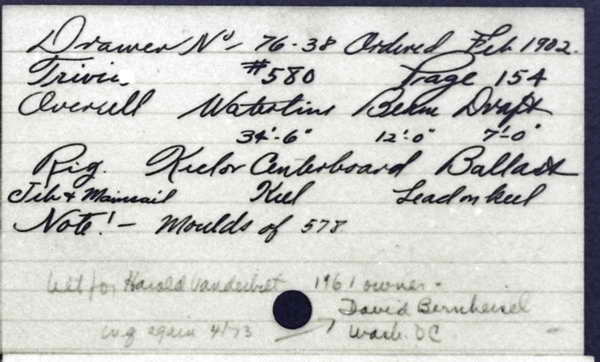 Drawer No- 76-38 Ordered Feb 1902.
Trivia #580 Page 154
Overall Waterline Beam Draft
34'-6" 12'-0" 7'-0"
Rig. Keel or Centerboard Ballast
Jib & Mainsail Keel Lead on keel
Note! - Moulds of 578
blt for Harold Vanderbilt 1961 owner -
David Bernheisel
inq again 4/73 Wash. DC